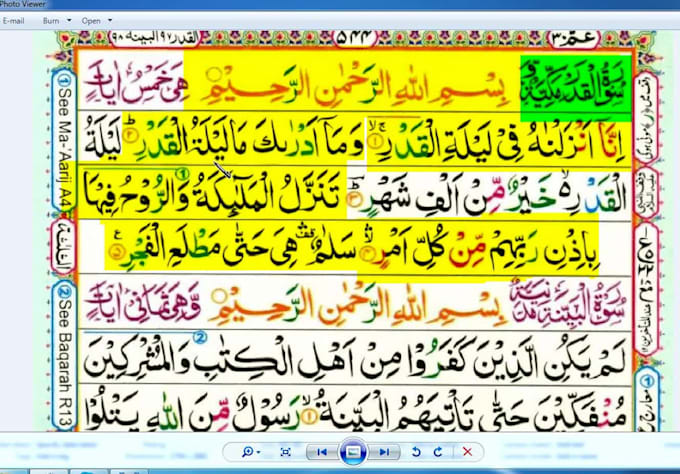 Photo Viewer
E-mail Burn Open
عمّ ٣٠ ۵۴۴ القدر ٩٧ البينه ٩٨
سُوْرَةُ الْقَدْرِ مَكِّيَّةٌ بِسْمِ اللهِ الرَّحْمٰنِ الرَّحِيْمِ هِىَ خَمْسُ اٰيَاتٍ
اِنَّاۤ اَنْزَلْنٰهُ فِىْ لَيْلَةِ الْقَدْرِ ۚۖ ١ وَمَاۤ اَدْرٰىكَ مَا لَيْلَةُ الْقَدْرِ ؕ ٢ لَيْلَةُ
الْقَدْرِ ۙ خَيْرٌ مِّنْ اَلْفِ شَهْرٍ ؕ ٣ تَنَزَّلُ الْمَلٰٓئِكَةُ وَالرُّوْحُ فِيْهَا
بِاِذْنِ رَبِّهِمْ مِّنْ كُلِّ اَمْرٍ ۙ ٤ سَلٰمٌ ۛ هِىَ حَتّٰى مَطْلَعِ الْفَجْرِ ٥
سُوْرَةُ الْبَيِّنَةِ مَدَنِيَّةٌ بِسْمِ اللهِ الرَّحْمٰنِ الرَّحِيْمِ وَّهِىَ ثَمَانِىْ اٰيَاتٍ
لَمْ يَكُنِ الَّذِيْنَ كَفَرُوْا مِنْ اَهْلِ الْكِتٰبِ وَالْمُشْرِكِيْنَ
مُنْفَكِّيْنَ حَتّٰى تَاْتِيَهُمُ الْبَيِّنَةُ ۙ ١ رَسُوْلٌ مِّنَ اللهِ يَتْلُوْا
① See Ma-'Aarij A4
الثلثة
② See Baqarah R13